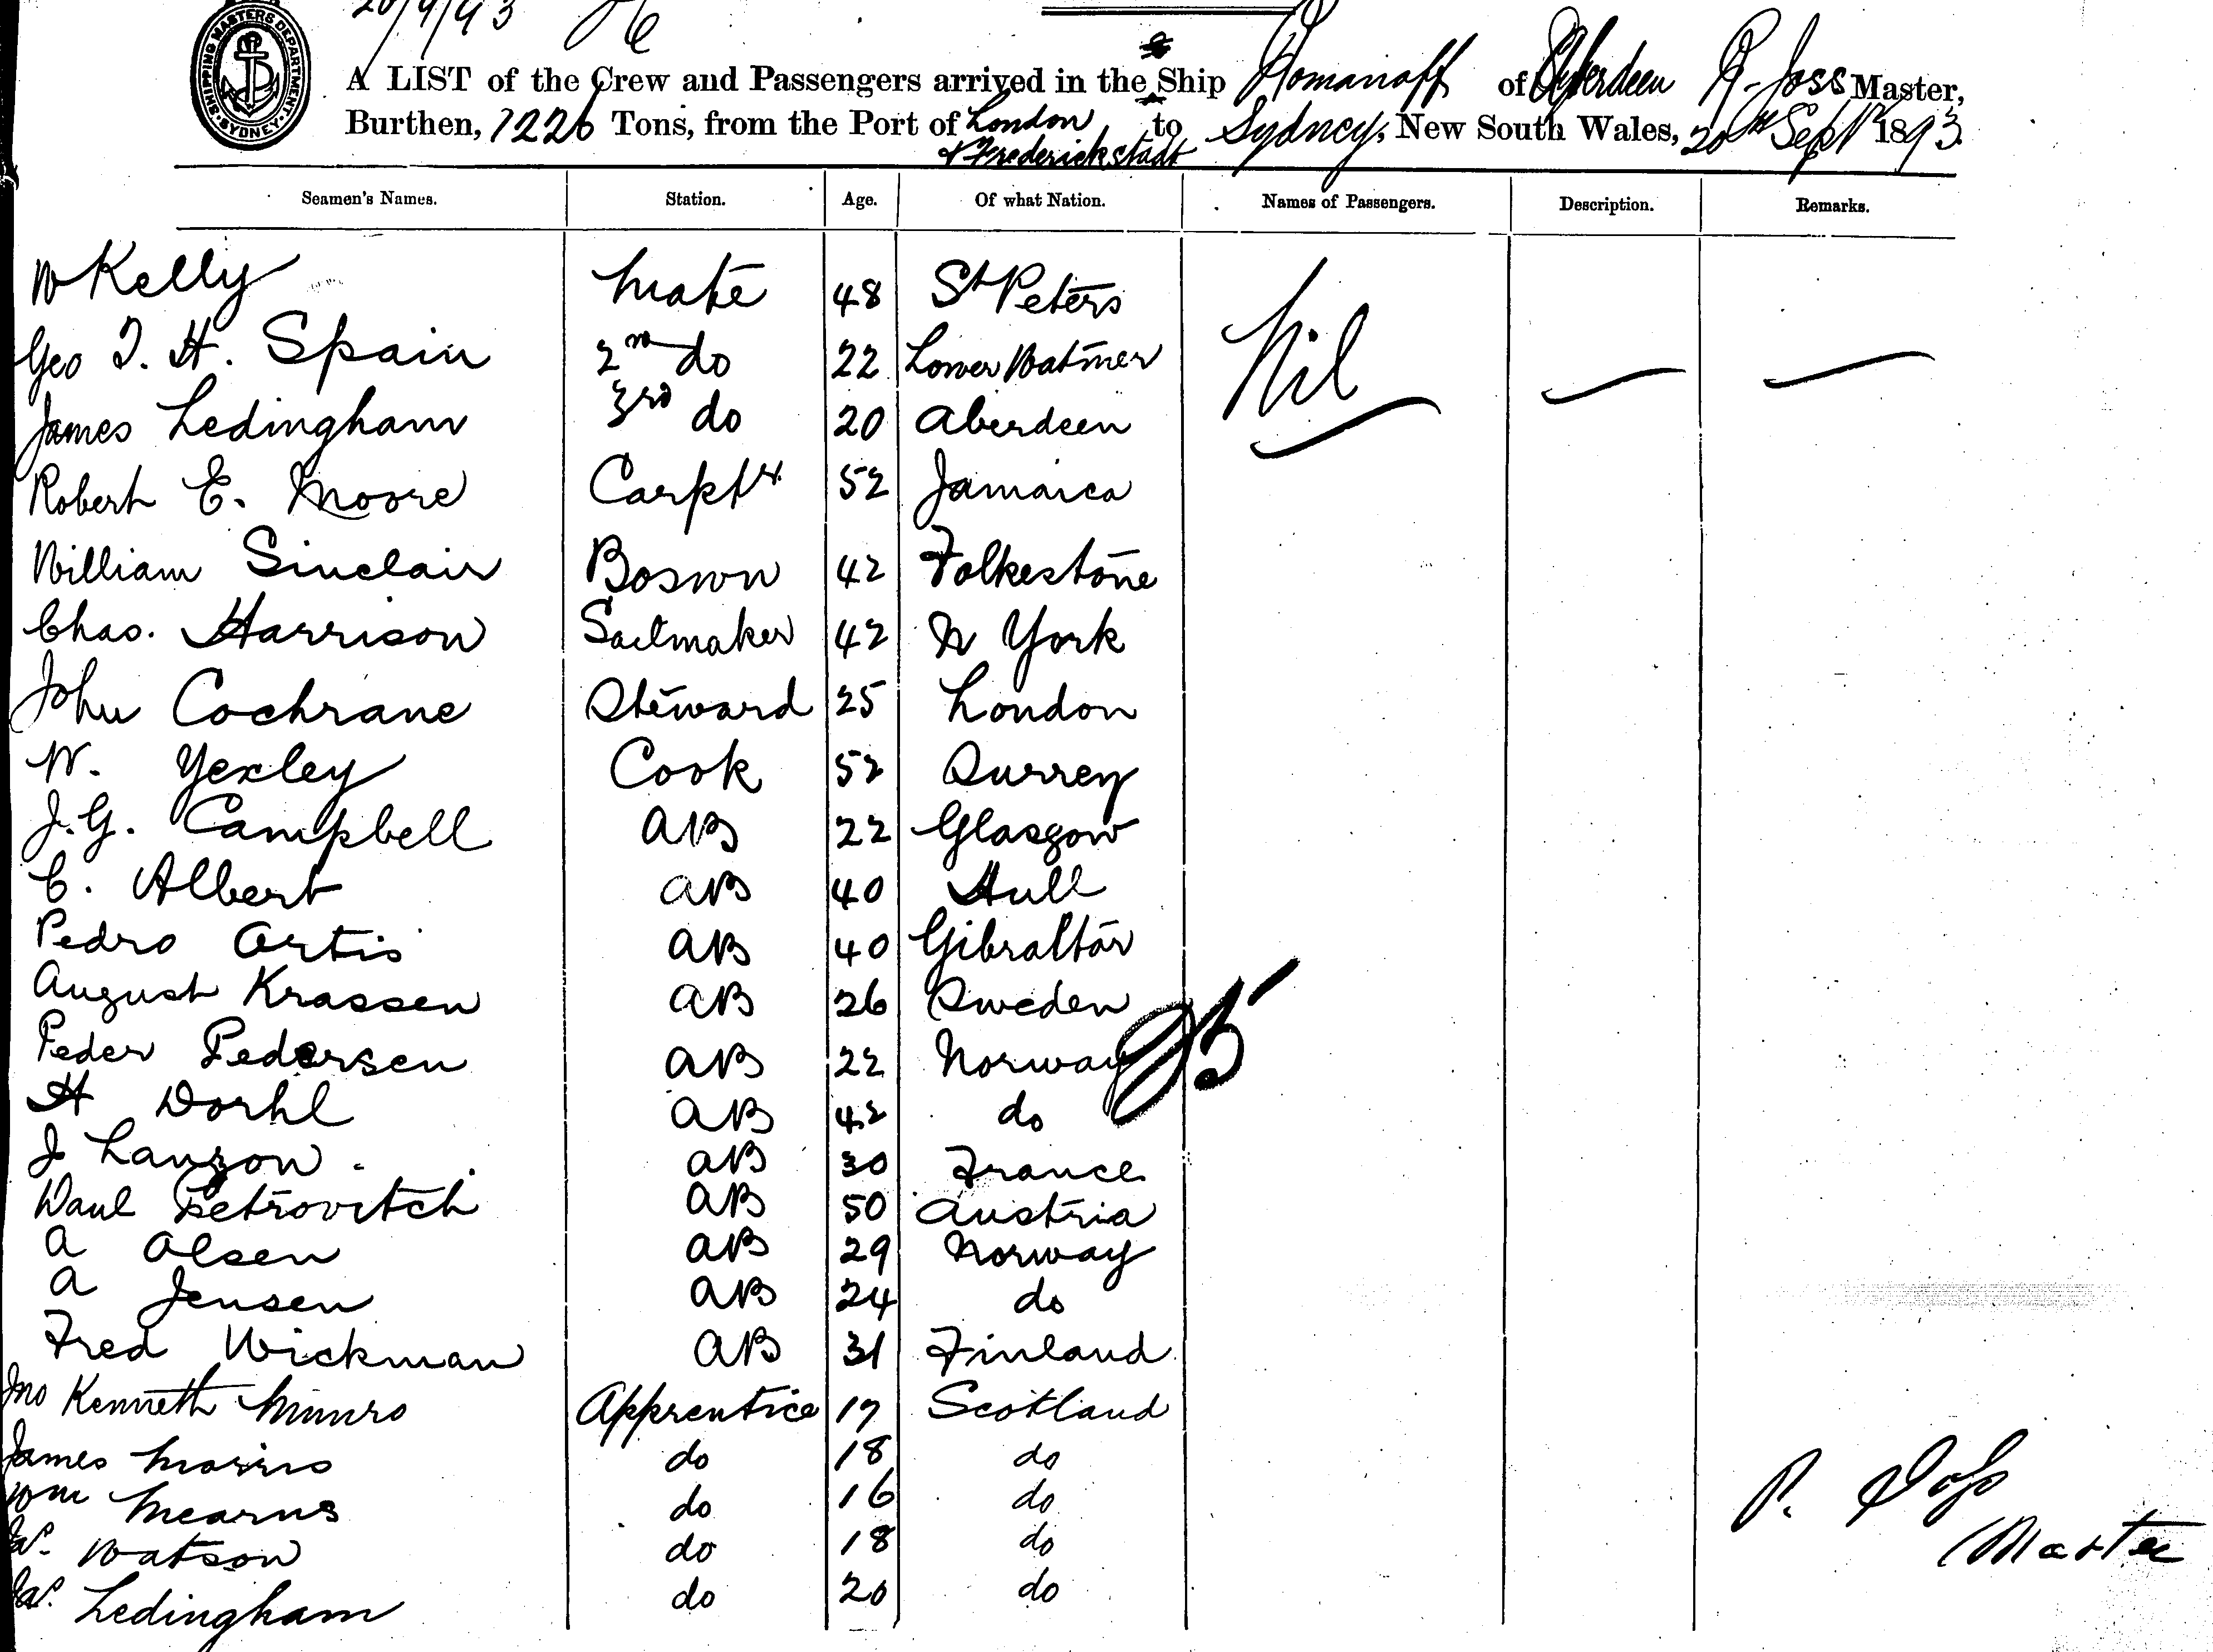 20/9/93
SHIPPING MASTERS DEPARTMENT SYDNEY
A LIST of the Crew and Passengers arrived in the Ship Romanoff of Aberdeen R. Joss Master,
Burthen, 1226 Tons, from the Port of London to Sydney, New South Wales, 20th Sept 1893
& Frederickstadt
Seamen's Names. Station. Age. Of what Nation. Names of Passengers. Description. Remarks.
W Kelly Mate 48 St Peters Nil
Geo T. H. Spain 2nd do 22 Lower Watmer
James Ledingham 3rd do 20 Aberdeen
Robert E. Moore Carptr 52 Jamaica
William Sinclair Boswn 42 Folkestone
Chas. Harrison Sailmaker 42 N York
John Cochrane Steward 25 London
W. Yexley Cook 52 Surrey
J.G. Campbell AB 22 Glasgow
C. Albert AB 40 Hull
Pedro Ortis AB 40 Gibraltar
August Krassen AB 26 Sweden
Peder Pedersen AB 22 Norway 25
H Dorhl AB 42 do
J Lanzon AB 30 France
Paul Petrovitch AB 50 Austria
A Olsen AB 29 Norway
A Jensen AB 24 do
Fred Wickman AB 31 Finland
Jno Kenneth Munro Apprentice 17 Scotland
James Morris do 18 do
Wm Mearns do 16 do
Jas. Watson do 18 do
Jas. Ledingham do 20 do
R. Joss
Master